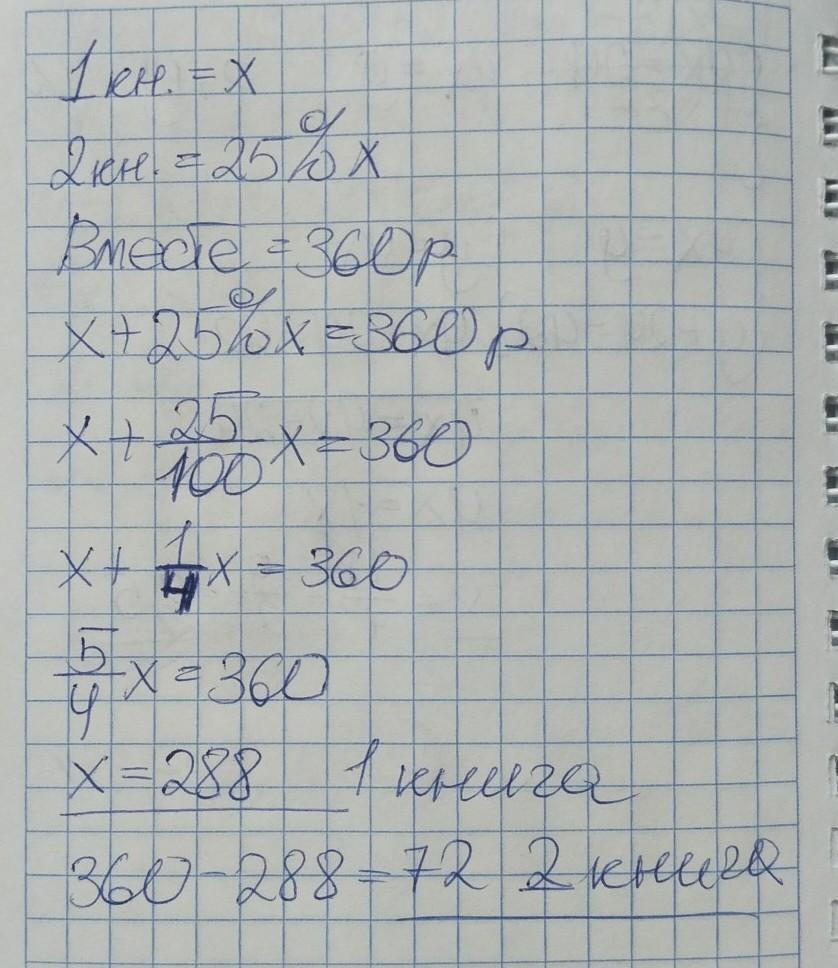 1 кн. = x
2 кн. = 25% x
Вместе = 360 р
x + 25% x = 360 р
x + 25/100 x = 360
x + 1/4 x = 360
5/4 x = 360
x = 288 1 книга
360 - 288 = 72 2 книга